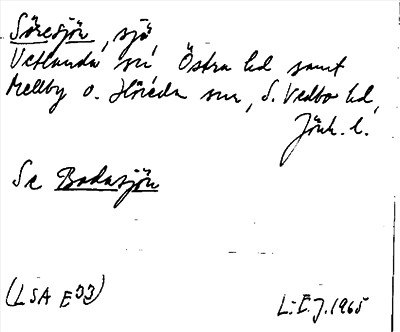 Söresjön, sjö
Vetlanda sn Östra hd samt
Mellby o. Höreda snr, S. Vedbo hd,
Jönk. l.
Se Bodasjön
(LSA E33)
L-E.J. 1965